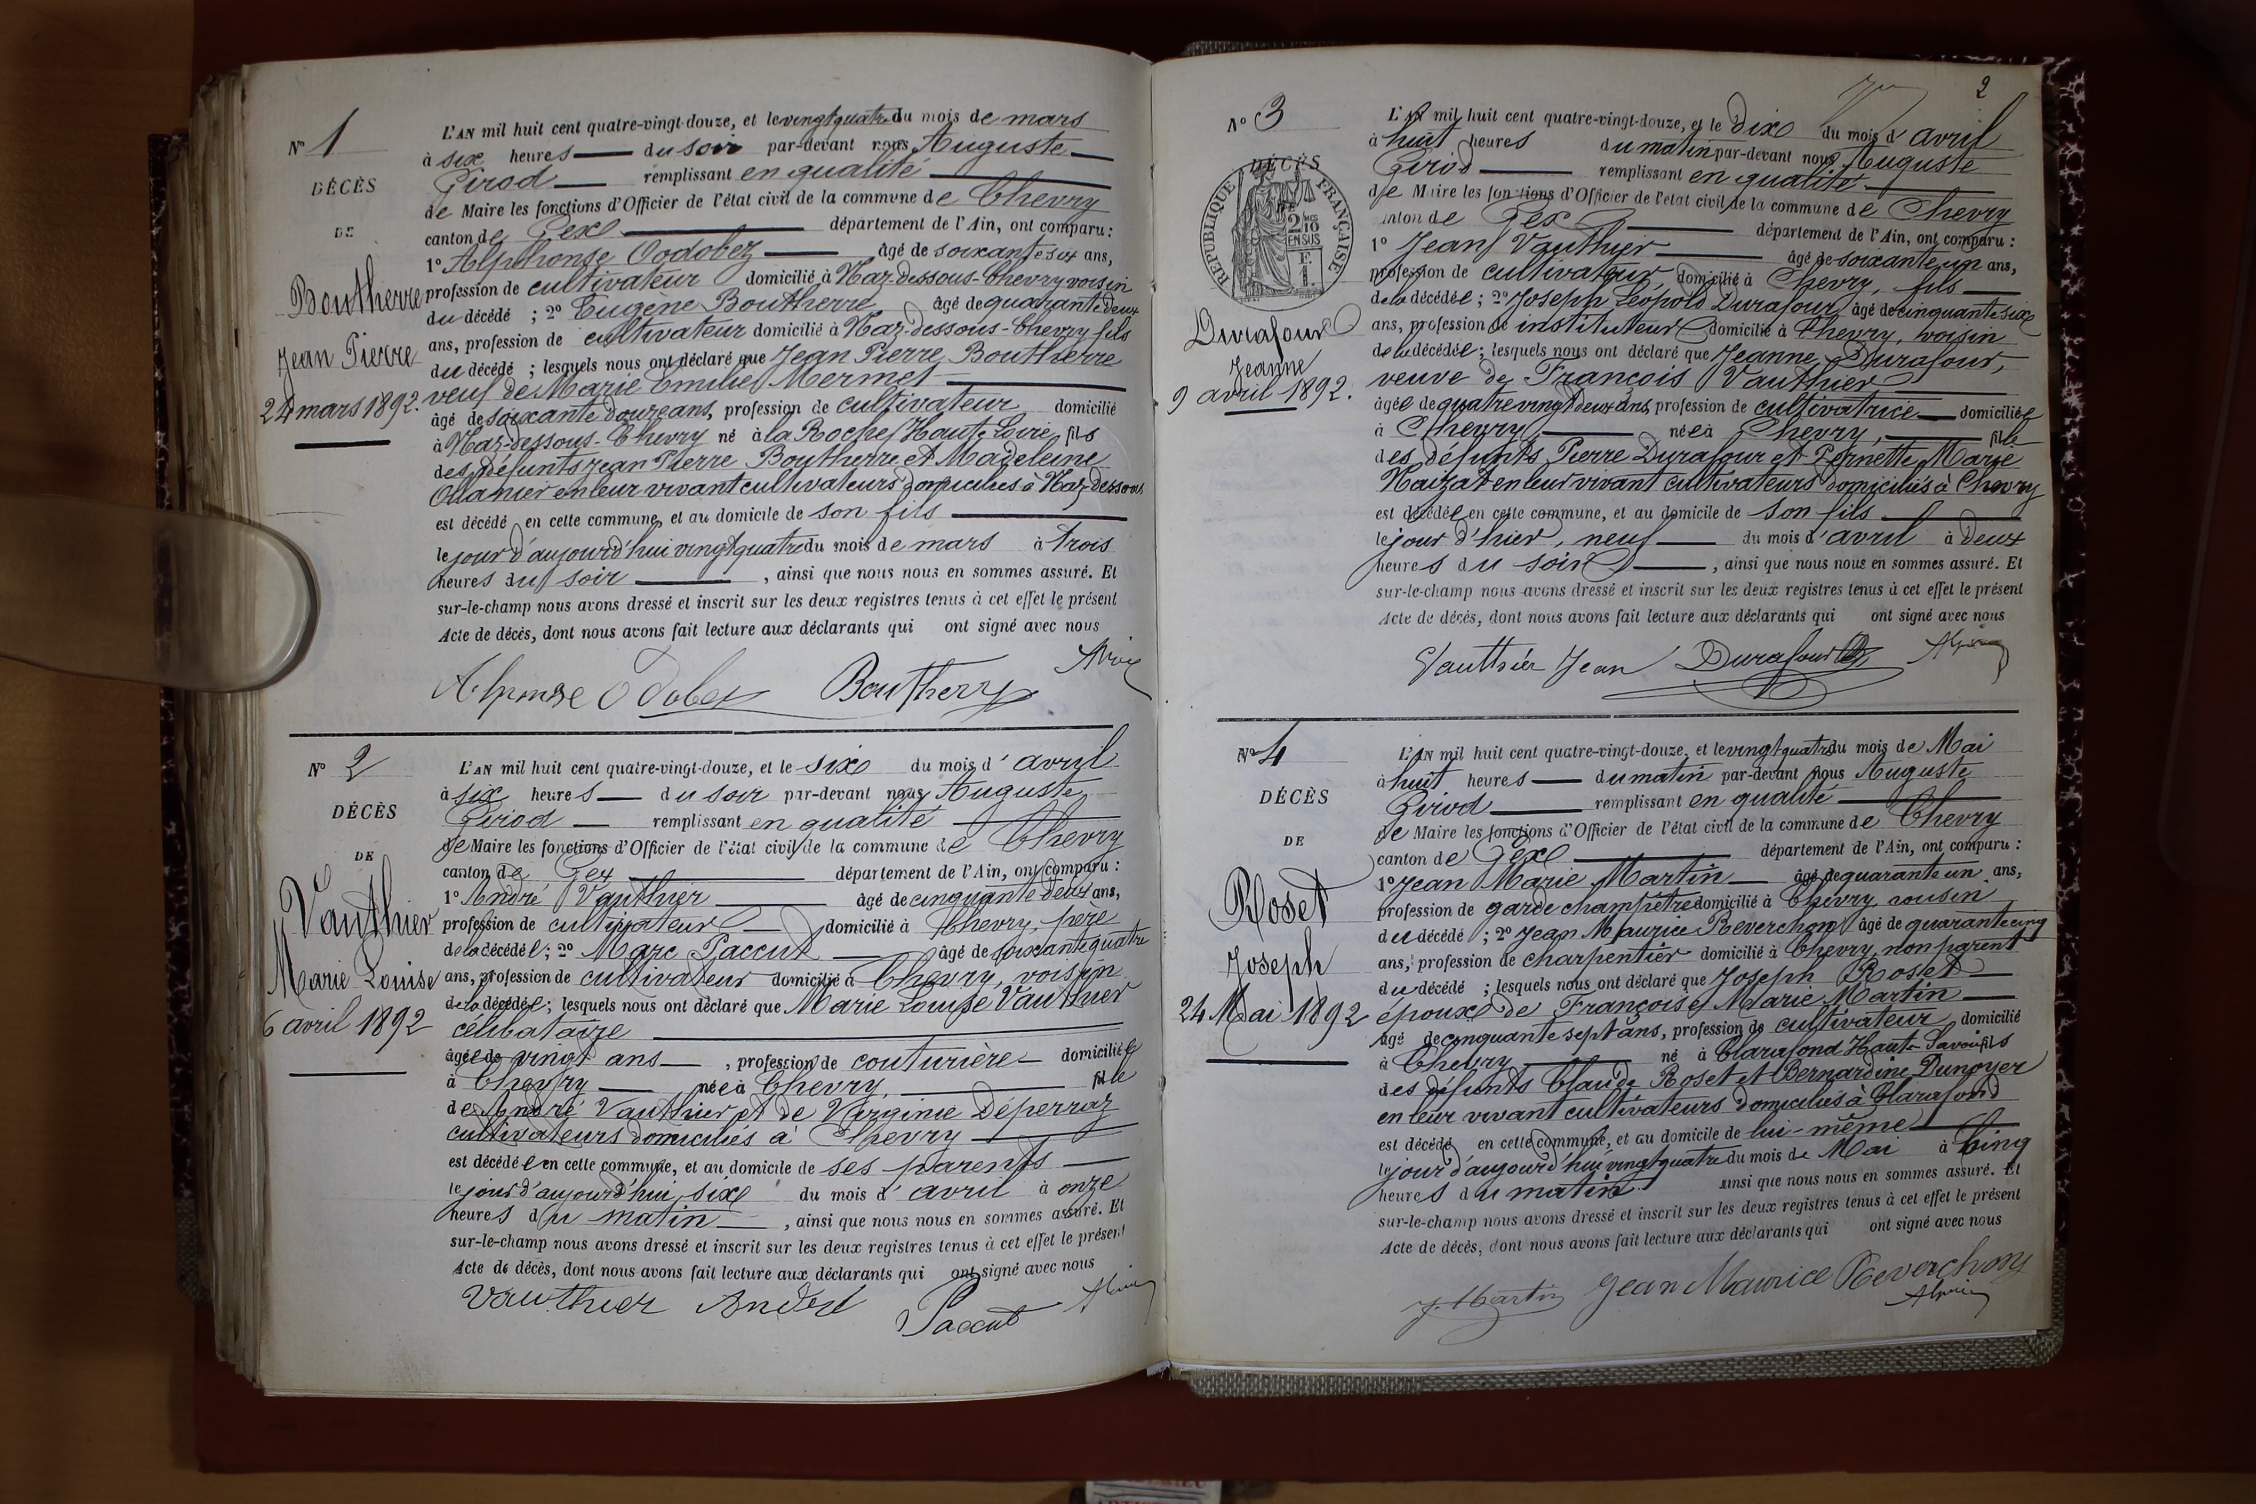 N° 1
DÉCÈS
DE
Boutherre
Jean Pierre
24 mars 1892.
L'AN mil huit cent quatre-vingt-douze, et le vingt quatre du mois de mars
à six heures du soir par-devant nous Auguste
Girod remplissant en qualité
de Maire les fonctions d'Officier de l'état civil de la commune de Chevry
canton de Gex département de l'Ain, ont comparu :
1° Alphonse Oodobez âgé de soixante six ans,
profession de cultivateur domicilié à Naz-dessous-Chevry voisin
du décédé ; 2° Eugène Boutherre âgé de quarante deux
ans, profession de cultivateur domicilié à Naz-dessous-Chevry fils
du décédé ; lesquels nous ont déclaré que Jean Pierre Boutherre
veuf de Marie Emilie Mermet
âgé de soixante douze ans, profession de cultivateur domicilié
à Naz-dessous-Chevry né à la Roche Haute Loire fils
des défunts Jean Pierre Boutherre et Madeleine
Ollanier en leur vivant cultivateurs domiciliés à Naz-dessous
est décédé en cette commune, et au domicile de son fils
le jour d'aujourd'hui vingt quatre du mois de mars à trois
heures du soir , ainsi que nous nous en sommes assuré. Et
sur-le-champ nous avons dressé et inscrit sur les deux registres tenus à cet effet le présent
Acte de décès, dont nous avons fait lecture aux déclarants qui ont signé avec nous
Alphonse Odobez Boutherre
N° 2
DÉCÈS
DE
Vauthier
Marie Louise
6 avril 1892
L'AN mil huit cent quatre-vingt-douze, et le six du mois d'avril
à six heures du soir par-devant nous Auguste
Girod remplissant en qualité
de Maire les fonctions d'Officier de l'état civil de la commune de Chevry
canton de Gex département de l'Ain, ont comparu :
1° André Vauthier âgé de cinquante deux ans,
profession de cultivateur domicilié à Chevry, père
de la décédée ; 2° Marc Paccut âgé de soixante quatre
ans, profession de cultivateur domicilié à Chevry, voisin
de la décédée ; lesquels nous ont déclaré que Marie Louise Vauthier
célibataire
âgée de vingt ans , profession de couturière domiciliée
à Chevry née à Chevry, fille
de André Vauthier et de Virginie Déperraz
cultivateurs domiciliés à Chevry
est décédée en cette commune, et au domicile de ses parents
le jour d'aujourd'hui, six du mois d'avril à onze
heures du matin , ainsi que nous nous en sommes assuré. Et
sur-le-champ nous avons dressé et inscrit sur les deux registres tenus à cet effet le présent
Acte de décès, dont nous avons fait lecture aux déclarants qui ont signé avec nous
Vauthier André Paccut
2
N° 3
DÉCÈS
RÉPUBLIQUE FRANÇAISE
2/10 EN SUS
Durafour
Jeanne
9 avril 1892.
L'AN mil huit cent quatre-vingt-douze, et le dix du mois d'avril
à huit heures du matin par-devant nous Auguste
Girod remplissant en qualité
de Maire les fonctions d'Officier de l'état civil de la commune de Chevry
canton de Gex département de l'Ain, ont comparu :
1° Jean Vauthier âgé de soixante un ans,
profession de cultivateur, domicilié à Chevry, fils
de la décédée ; 2° Joseph Léopold Durafour, âgé de cinquante six
ans, profession de instituteur domicilié à Chevry, voisin
de la décédée ; lesquels nous ont déclaré que Jeanne Durafour,
veuve de François Vauthier
âgée de quatre vingt deux ans, profession de cultivatrice domiciliée
à Chevry, née à Chevry, fille
des défunts Pierre Durafour et Pernette Marie
Naizat en leur vivant cultivateurs domiciliés à Chevry
est décédée en cette commune, et au domicile de son fils
le jour d'hier, neuf du mois d'avril à deux
heures du soir , ainsi que nous nous en sommes assuré. Et
sur-le-champ nous avons dressé et inscrit sur les deux registres tenus à cet effet le présent
Acte de décès, dont nous avons fait lecture aux déclarants qui ont signé avec nous
Vauthier Jean Durafour
N° 4
DÉCÈS
DE
Roset
Joseph
24 Mai 1892
L'AN mil huit cent quatre-vingt-douze, et le vingt quatre du mois de Mai
à huit heures du matin par-devant nous Auguste
Girod remplissant en qualité
de Maire les fonctions d'Officier de l'état civil de la commune de Chevry
canton de Gex département de l'Ain, ont comparu :
1° Jean Marie Martin âgé de quarante un ans,
profession de garde champêtre domicilié à Chevry, cousin
du décédé ; 2° Jean Maurice Reverchon âgé de quarante cinq
ans, profession de charpentier domicilié à Chevry, non parent
du décédé ; lesquels nous ont déclaré que Joseph Roset
époux de Françoise Marie Martin
âgé de cinquante sept ans, profession de cultivateur domicilié
à Chevry né à Clarafond Haute-Savoie fils
des défunts Claude Roset et Bernardine Dunoyer
en leur vivant cultivateurs domiciliés à Clarafond
est décédé en cette commune, et au domicile de lui-même
le jour d'aujourd'hui vingt quatre du mois de Mai à Cinq
heures du matin ainsi que nous nous en sommes assuré. Et
sur-le-champ nous avons dressé et inscrit sur les deux registres tenus à cet effet le présent
Acte de décès, dont nous avons fait lecture aux déclarants qui ont signé avec nous
J. Martin Jean Maurice Reverchon